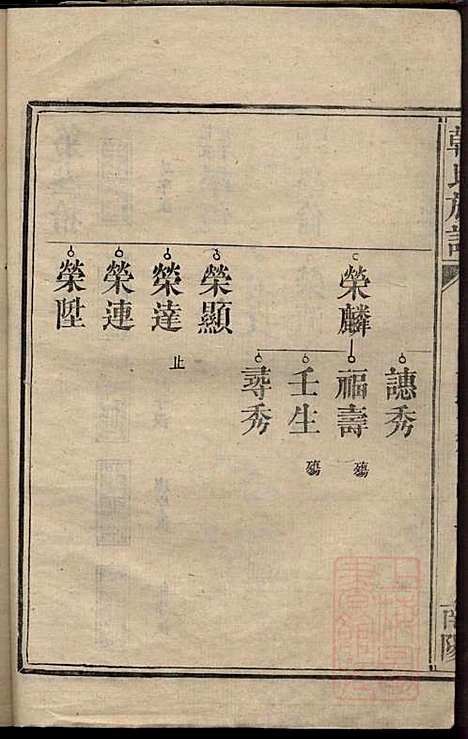 韓氏族譜
南陽
譓秀
榮麟
福壽 殤
壬生 殤
尋秀
榮顯
榮達 止
榮連
榮陞